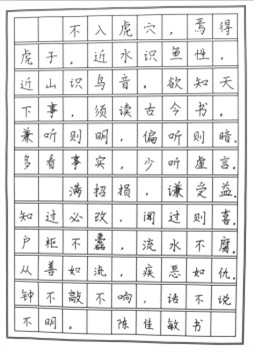 不入虎穴，焉得
虎子。近水识鱼性，
近山识鸟音。欲知天
下事，须读古今书。
兼听则明，偏听则暗.
多看事实，少听虚言.
满招损，谦受益.
知过必改，闻过则喜.
户枢不蠹，流水不腐.
从善如流，疾恶如仇.
钟不敲不响，语不说
不明。 陈佳敏书